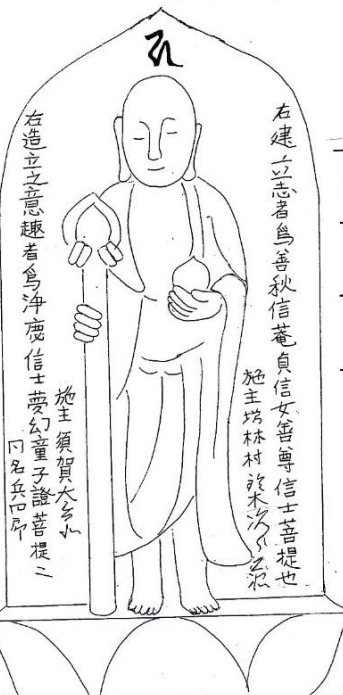 右建立志者為善秋信菴貞信女善尊信士菩提也
施主坊林村鈴木次
右造立之意趣者為淨慶信士夢幻童子證菩提二
施主須賀太
同名兵四郎